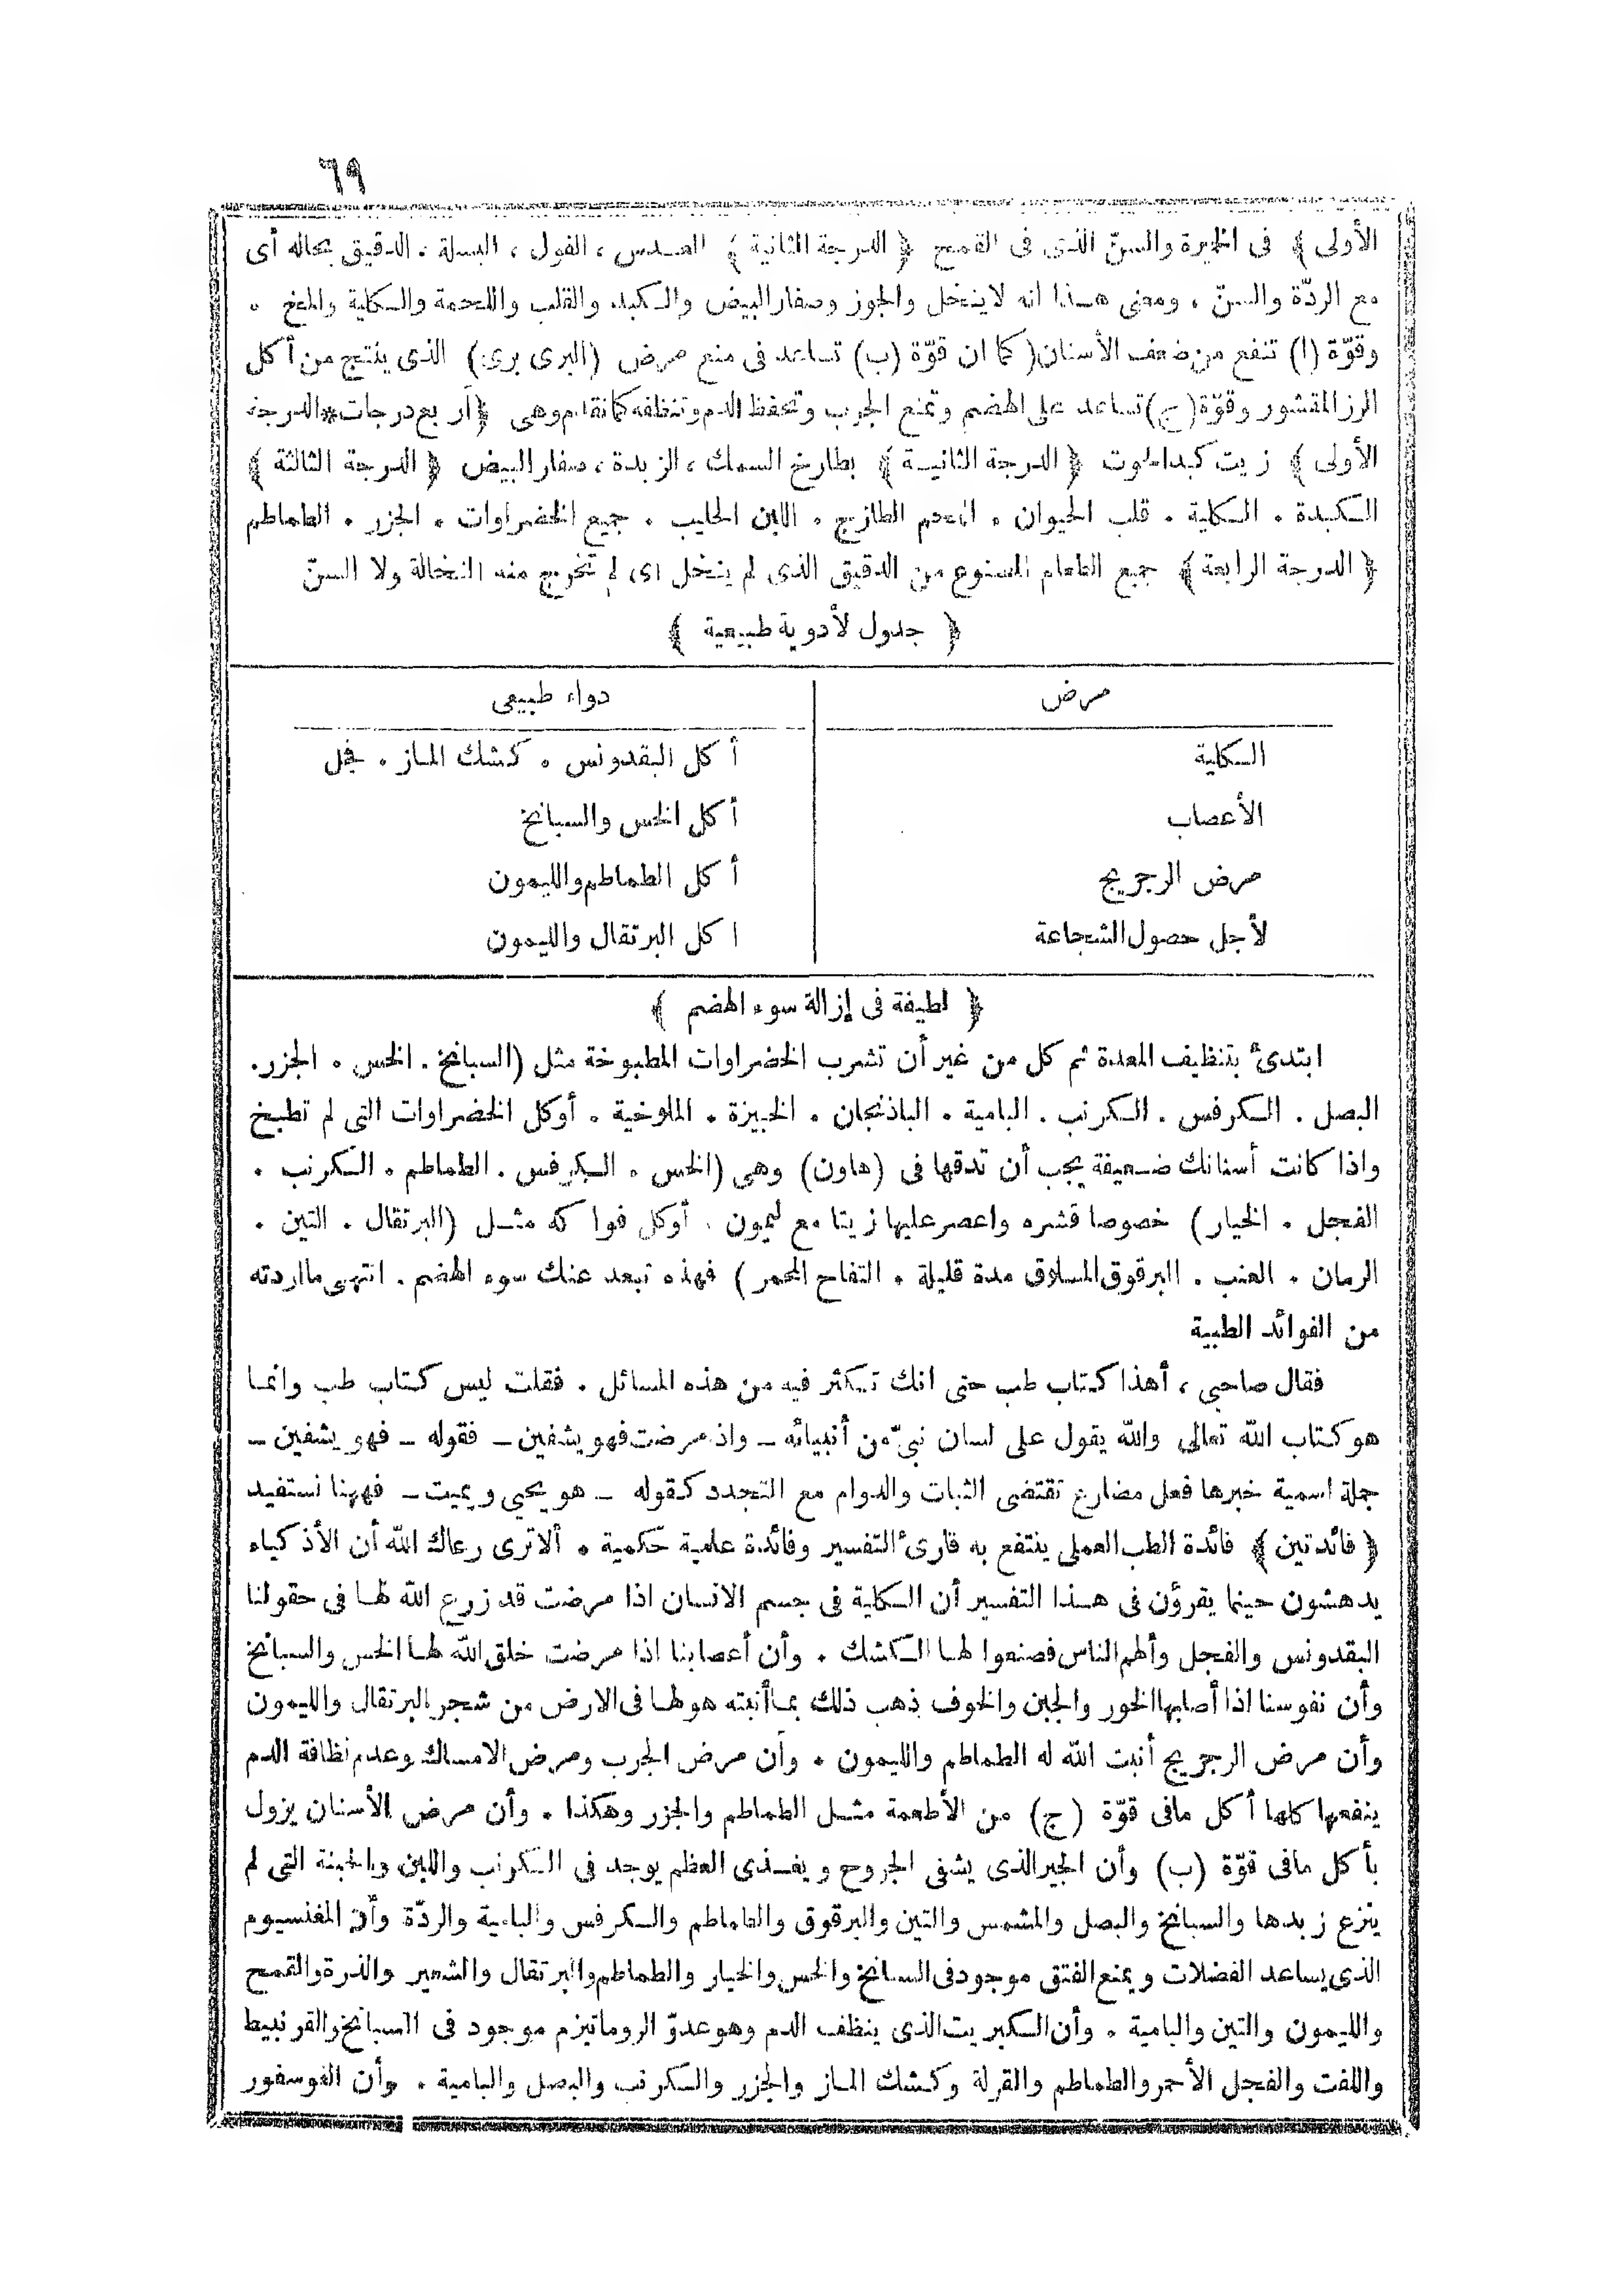 ٦٩
الأولى ﴾ فى الخميرة والسنّ الذى فى القمح ﴿ الدرجة الثانية ﴾ العدس ، الفول ، البسلة . الدقيق بحاله أى
مع الردّة والسنّ ، ومعنى هذا انه لاينخل والجوز وصفار البيض والكبد والقلب واللحمة والكلية والمخ .
وقوّة (ا) تنفع من ضعف الأسنان( كما ان قوّة (ب) تساعد فى منع مرض (البرى برى) الذى ينتج من أكل
الرز المقشور وقوّة (ج) تساعد على الهضم وتمنع الجرب وتحفظ الدم وتنظفه كما تقدّم وهى ﴿ أربع درجات * الدرجة
الأولى ﴾ زيت كبد الحوت ﴿ الدرجة الثانية ﴾ بطارخ السمك ، الزبدة ، صفار البيض ﴿ الدرجة الثالثة ﴾
الكبدة . الكلية . قلب الحيوان . اللحم الطازج . اللبن الحليب . جميع الخضراوات . الجزر . الطماطم
﴿ الدرجة الرابعة ﴾ جميع الطعام المصنوع من الدقيق الذى لم ينخل اى لم تخرج منه النخالة ولا السنّ
﴿ جدول لأدوية طبيعية ﴾
مرض دواء طبيعى
الكلية أكل البقدونس . كشك الماز . فجل
الأعصاب أكل الخس والسبانخ
مرض الرجريج أكل الطماطم والليمون
لأجل حصول الشجاعة اكل البرتقال والليمون
﴿ لطيفة فى إزالة سوء الهضم ﴾
ابتدئ بتنظيف المعدة ثم كل من غير أن تشرب الخضراوات المطبوخة مثل (السبانخ . الخس . الجزر.
البصل . الكرفس . الكرنب . البامية . الباذنجان . الخبيزة . الملوخية . أوكل الخضراوات التى لم تطبخ
واذا كانت أسنانك ضعيفة يجب أن تدقها فى (هاون) وهى (الخس . الكرفس . الطماطم . الكرنب .
الفجل . الخيار) خصوصا قشره واعصر عليها زيتا مع ليمون . أوكل فواكه مثل (البرتقال . التين .
الرمان . العنب . البرقوق المسلوق مدة قليلة . التفاح المحمر) فهذه تبعد عنك سوء الهضم . انتهى ما اردته
من الفوائد الطبية
فقال صاحبى ، أهذا كتاب طب حتى انك تكثر فيه من هذه المسائل . فقلت ليس كتاب طب وانما
هو كتاب الله تعالى والله يقول على لسان نبىّ من أنبيائه ــ واذ مرضت فهو يشفين ــ فقوله ــ فهو يشفين ــ
جملة اسمية خبرها فعل مضارع تقتضى الثبات والدوام مع التجدد كقوله ــ هو يحيى ويميت ــ فههنا نستفيد
﴿ فائدتين ﴾ فائدة الطب العملى ينتفع به قارئ التفسير وفائدة علمية حكمية . ألا ترى رعاك الله أن الأذكياء
يدهشون حينما يقرؤن فى هذا التفسير أن الكلية فى جسم الانسان اذا مرضت قد زرع الله لها فى حقولنا
البقدونس والفجل وألهم الناس فصنعوا لها الكشك . وأن أعصابنا اذا مرضت خلق الله لها الخس والسبانخ
وأن نفوسنا اذا أصابها الخور والجبن والخوف ذهب ذلك بما أنبته هو لها فى الارض من شجر البرتقال والليمون
وأن مرض الرجريج أنبت الله له الطماطم والليمون . وأن مرض الجرب ومرض الامساك وعدم نظافة الدم
ينفعها كلها أكل مافى قوّة (ج) من الأطعمة مثل الطماطم والجزر وهكذا . وأن مرض الأسنان يزول
بأكل مافى قوّة (ب) وأن الجير الذى يشفى الجروح ويغذى العظم يوجد فى الكرنب واللبن والجبنة التى لم
ينزع زبدها والسبانخ والبصل والمشمس والتين والبرقوق والطماطم والكرفس والبامية والردّة وأن المغنسيوم
الذى يساعد الفضلات ويمنع الفتق موجود فى السبانخ والخس والخيار والطماطم والبرتقال والشعير والذرة والقمح
والليمون والتين والبامية . وأن الكبريت الذى ينظف الدم وهو عدوّ الروماتيزم موجود فى السبانخ والقرنبيط
واللفت والفجل الأحمر والطماطم والقرلة وكشك الماز والجزر والكرنب والبصل والبامية . وأن الفوسفور